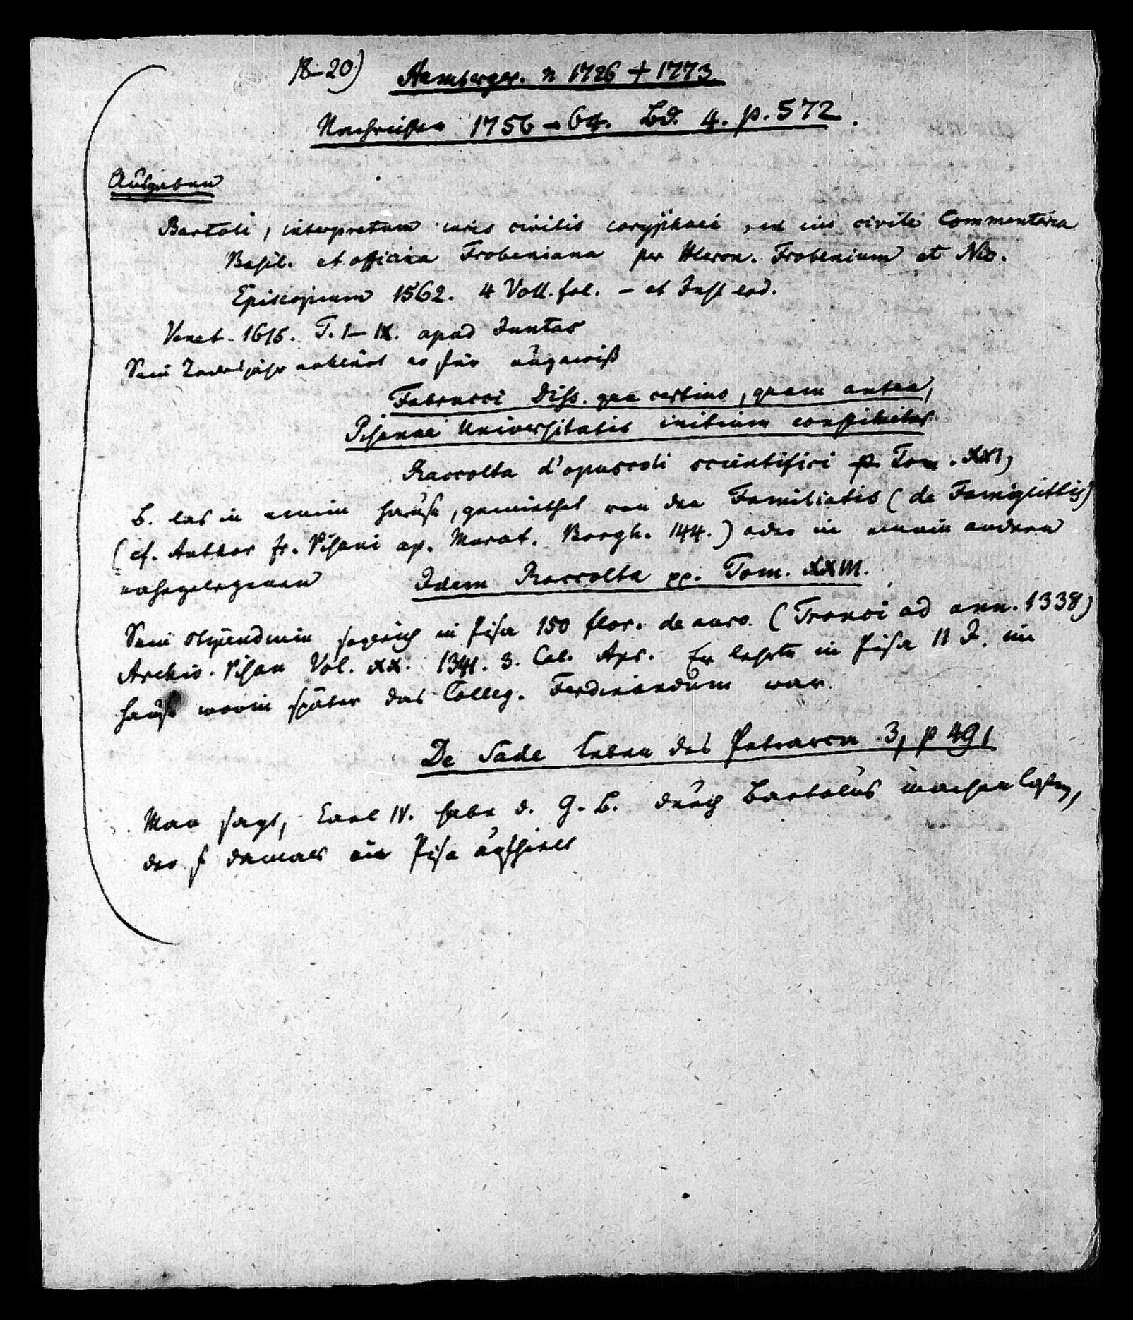 18–20) Hamberger. n 1726 + 1773
Nachrichten 1756–64. Bd. 4. p. 572.
Ausgaben
Bartoli, interpretum iuris civilis coryphaei, in ius civile Commentaria
Basil. et officina Frobeniana per Hieron. Frobenium et Nic.
Episcopium 1562. 4 Voll. fol. – et Just. eod.
Venet. 1615. T. I–IX. apud Juntas
Sein Todesjahr erklärt er für ungewiß
Fabrucci Diss. qua certius, quam antea,
Pisanae Universitatis initium constituitur
Raccolta d'opuscoli scientifici p. Tom. XXI,
B. las in einem Hause, gemiethet von den Familiatis (de Famigliettis)
(cf. Author fr. Pisani ap. Murat. Borgh. 144.) oder in einem andern
nahegelegenen Idem Raccolta pp. Tom. XXIII.
Sein Stipendium jährlich in Pisa 150 flor. de auro (Tronci ad ann. 1338)
Archiv. Pisan Vol. XX. 1341. 3. Cal. Apr. Er lehrte in Pisa 11 J. im
Hause worin später das Colleg. Ferdinandum war.
De Sade Leben des Petrarca 3, p 491
Man sagt, Carl IV. habe d. G. B. durch Bartolus machen lassen,
der s. damals in Pisa aufhielt